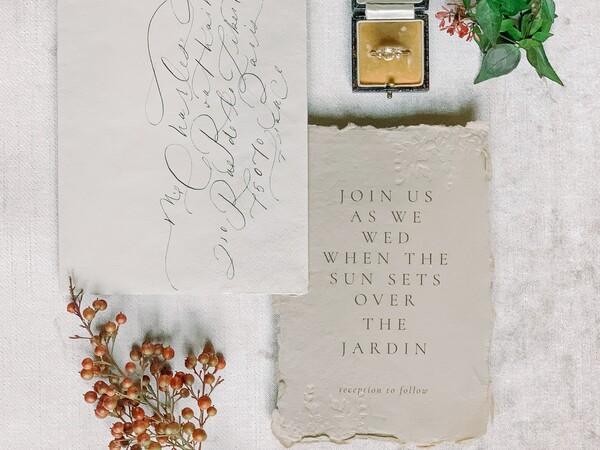 Mr Charles
210 Rue de
75070 Paris
France
JOIN US
AS WE
WED
WHEN THE
SUN SETS
OVER
THE
JARDIN
reception to follow